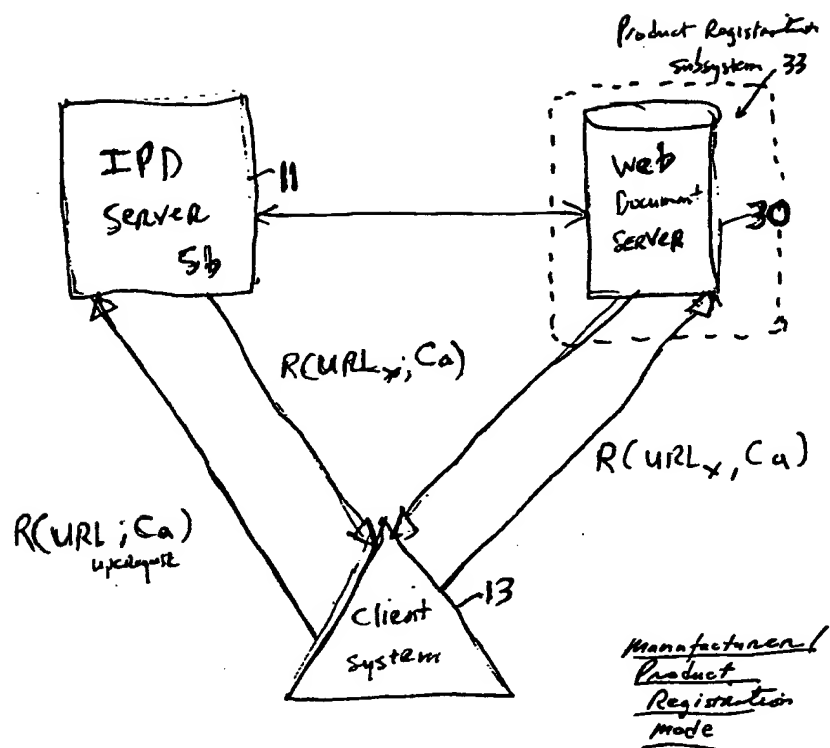 Product Registration
subsystem 33
IPD
Server
5b
11
Web
Document
Server
30
R(URLx; Ca)
R(URLx, Ca)
R(URL; Ca)
Client
System
13
Manufacturer/
Product
Registration
mode